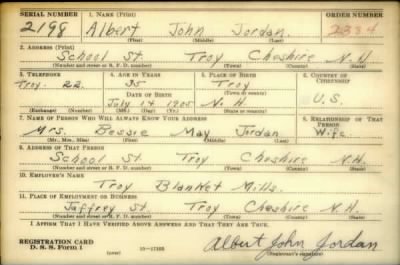 SERIAL NUMBER 1. NAME (Print) ORDER NUMBER
2198 Albert John Jordan 2334
(First) (Middle) (Last)
2. ADDRESS (Print)
School St. Troy Cheshire N.H.
(Number and street or R. F. D. number) (Town) (County) (State)
3. TELEPHONE 4. AGE IN YEARS 5. PLACE OF BIRTH 6. COUNTRY OF CITIZENSHIP
Troy 35 Troy
DATE OF BIRTH (Town or county)
July 14 1905 N.H. U.S.
(Exchange) (Number) (Mo.) (Day) (Yr.) (State or country)
7. NAME OF PERSON WHO WILL ALWAYS KNOW YOUR ADDRESS 8. RELATIONSHIP OF THAT PERSON
Mrs. Bessie May Jordan Wife.
(Mr., Mrs., Miss) (First) (Middle) (Last)
9. ADDRESS OF THAT PERSON
School St. Troy Cheshire N.H.
(Number and street or R. F. D. number) (Town) (County) (State)
10. EMPLOYER'S NAME
Troy Blanket Mills.
11. PLACE OF EMPLOYMENT OR BUSINESS
Jaffrey St. Troy Cheshire N.H.
(Number and street or R. F. D. number) (Town) (County) (State)
I AFFIRM THAT I HAVE VERIFIED ABOVE ANSWERS AND THAT THEY ARE TRUE.
REGISTRATION CARD
D. S. S. Form 1 (over) Albert John Jordan
(Registrant's signature)